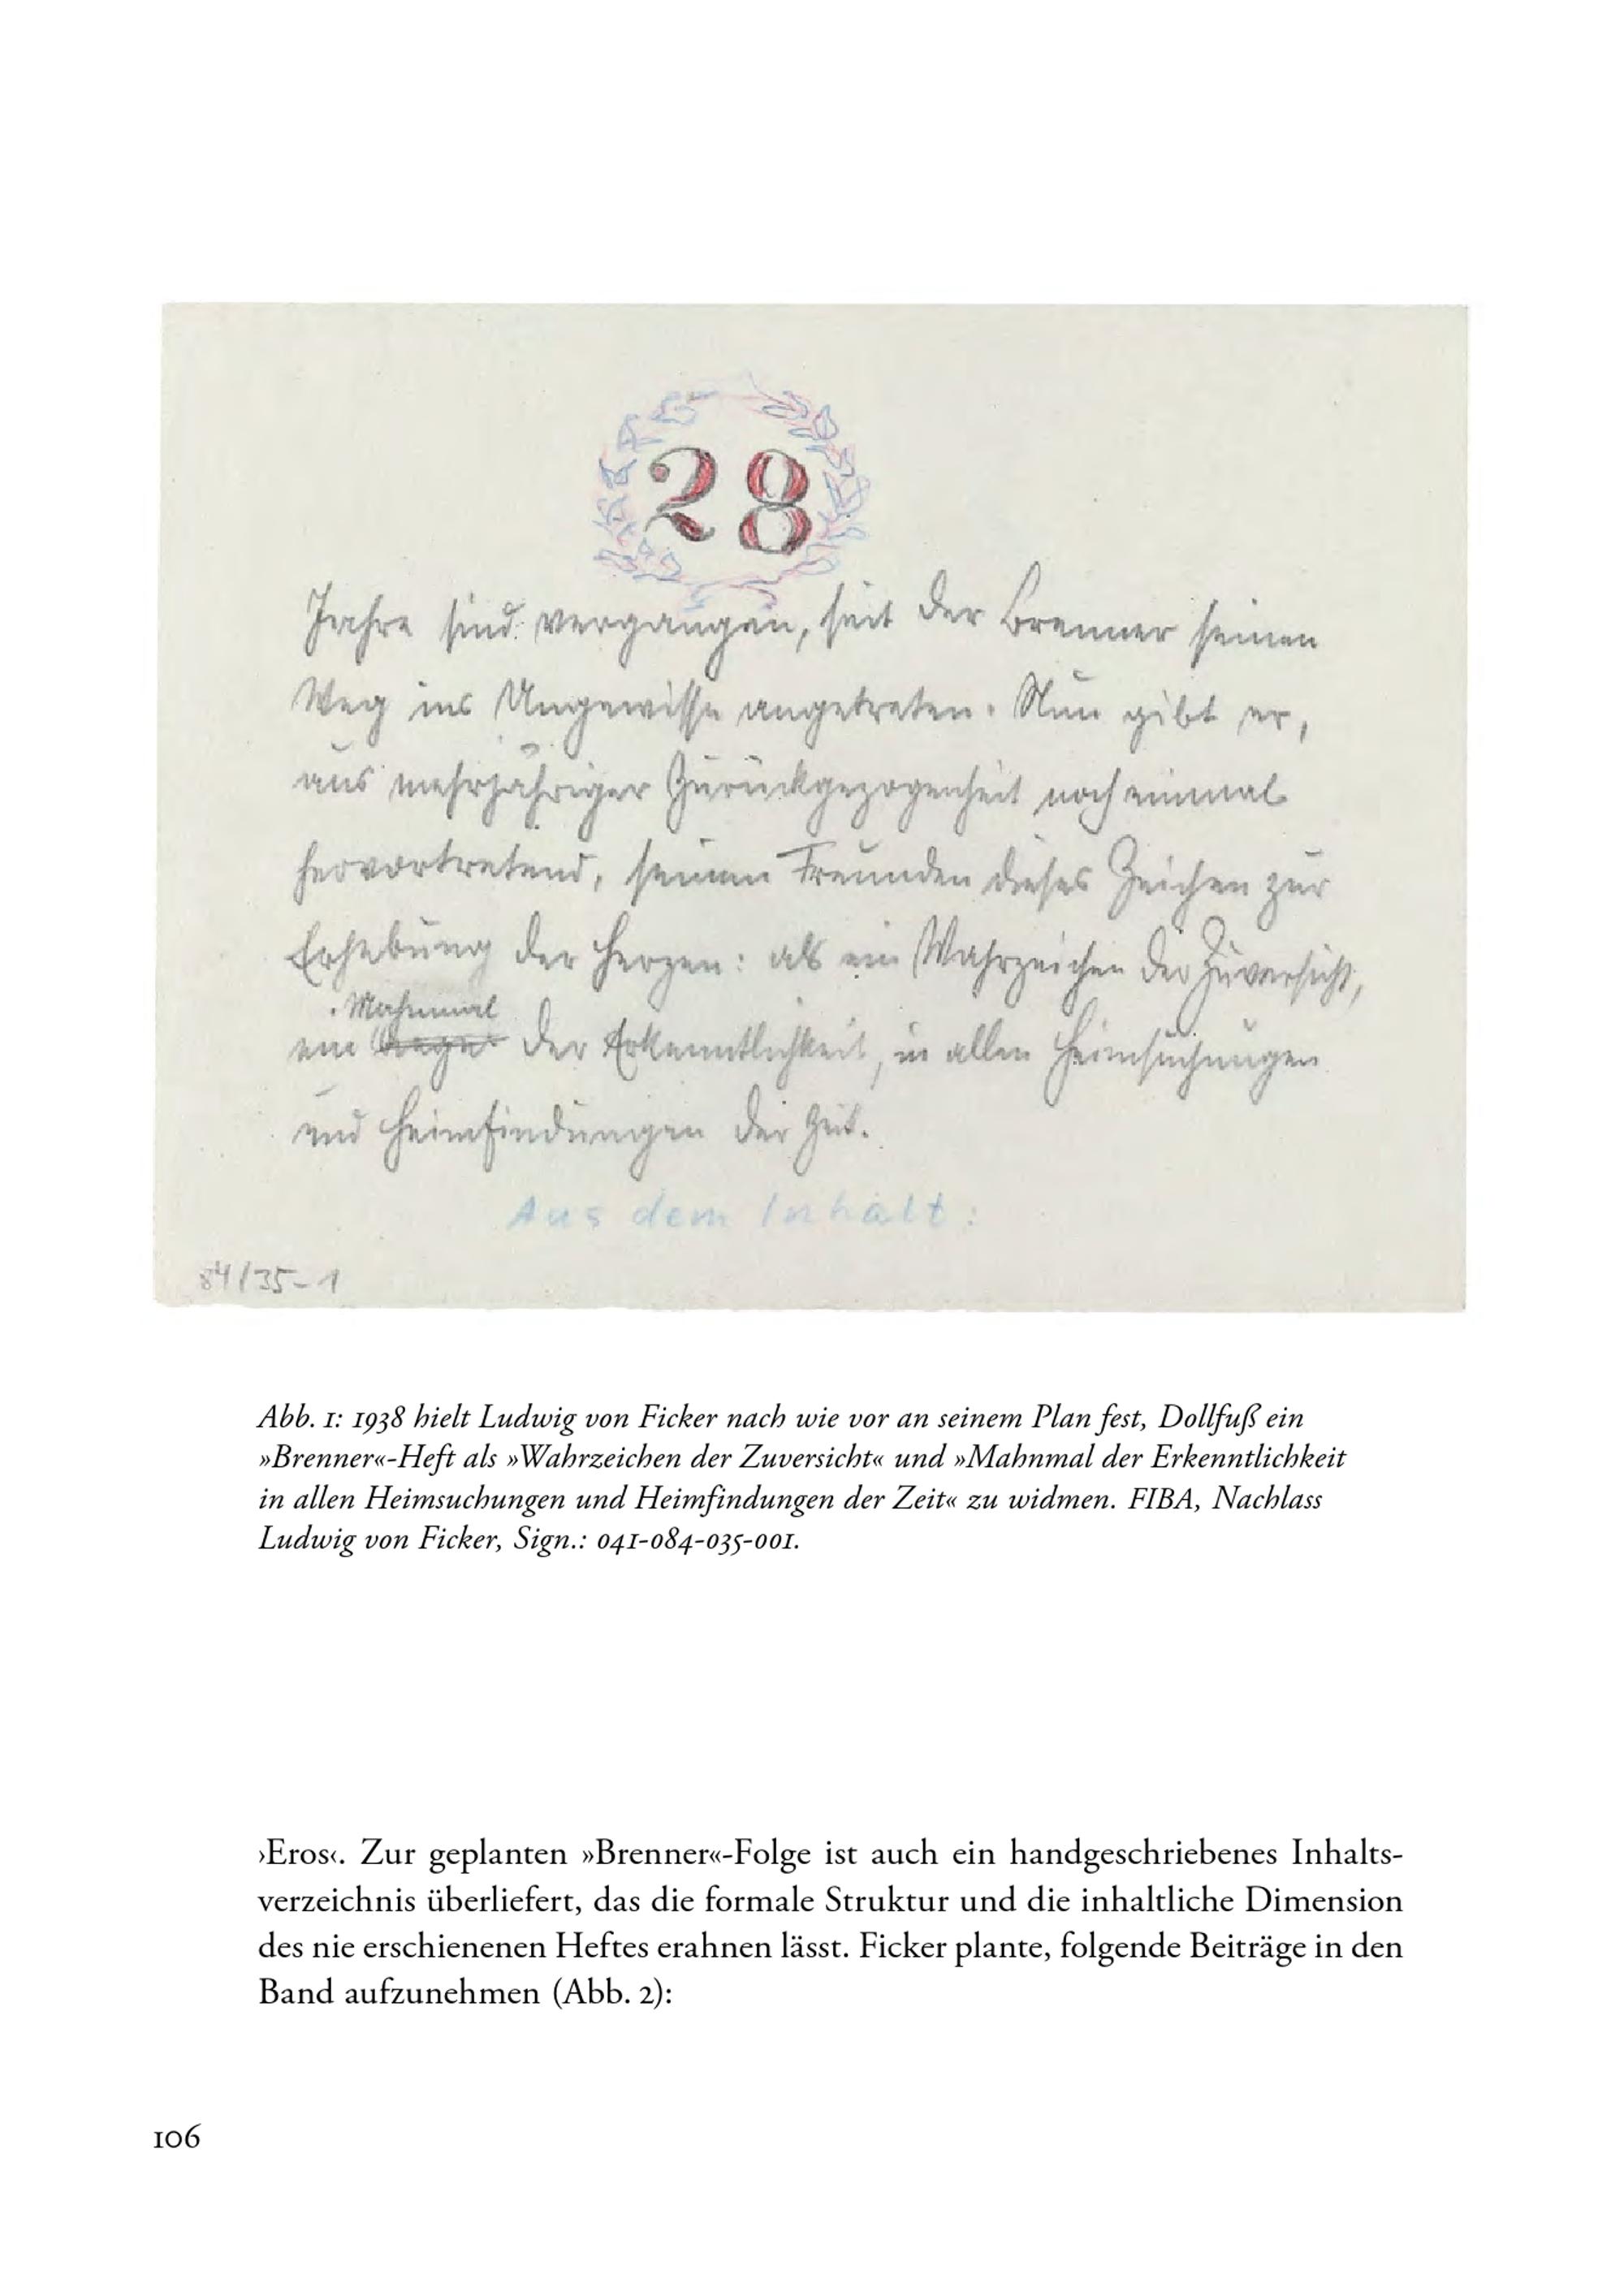 28
Jahre sind vergangen, seit der Brenner seinen
Weg ins Ungewisse angetreten. Nun gibt er,
aus mehrjähriger Zurückgezogenheit noch einmal
hervortretend, seinen Freunden dieses Zeichen zur
Erhebung der Herzen: als ein Wahrzeichen der Zuversicht,
Mahnmal
ein der Erkenntlichkeit, in allen Heimsuchungen
und Heimfindungen der Zeit.
Aus dem Inhalt:
84/35-1
Abb. 1: 1938 hielt Ludwig von Ficker nach wie vor an seinem Plan fest, Dollfuß ein
»Brenner«-Heft als »Wahrzeichen der Zuversicht« und »Mahnmal der Erkenntlichkeit
in allen Heimsuchungen und Heimfindungen der Zeit« zu widmen. FIBA, Nachlass
Ludwig von Ficker, Sign.: 041-084-035-001.
›Eros‹. Zur geplanten »Brenner«-Folge ist auch ein handgeschriebenes Inhalts-
verzeichnis überliefert, das die formale Struktur und die inhaltliche Dimension
des nie erschienenen Heftes erahnen lässt. Ficker plante, folgende Beiträge in den
Band aufzunehmen (Abb. 2):
106